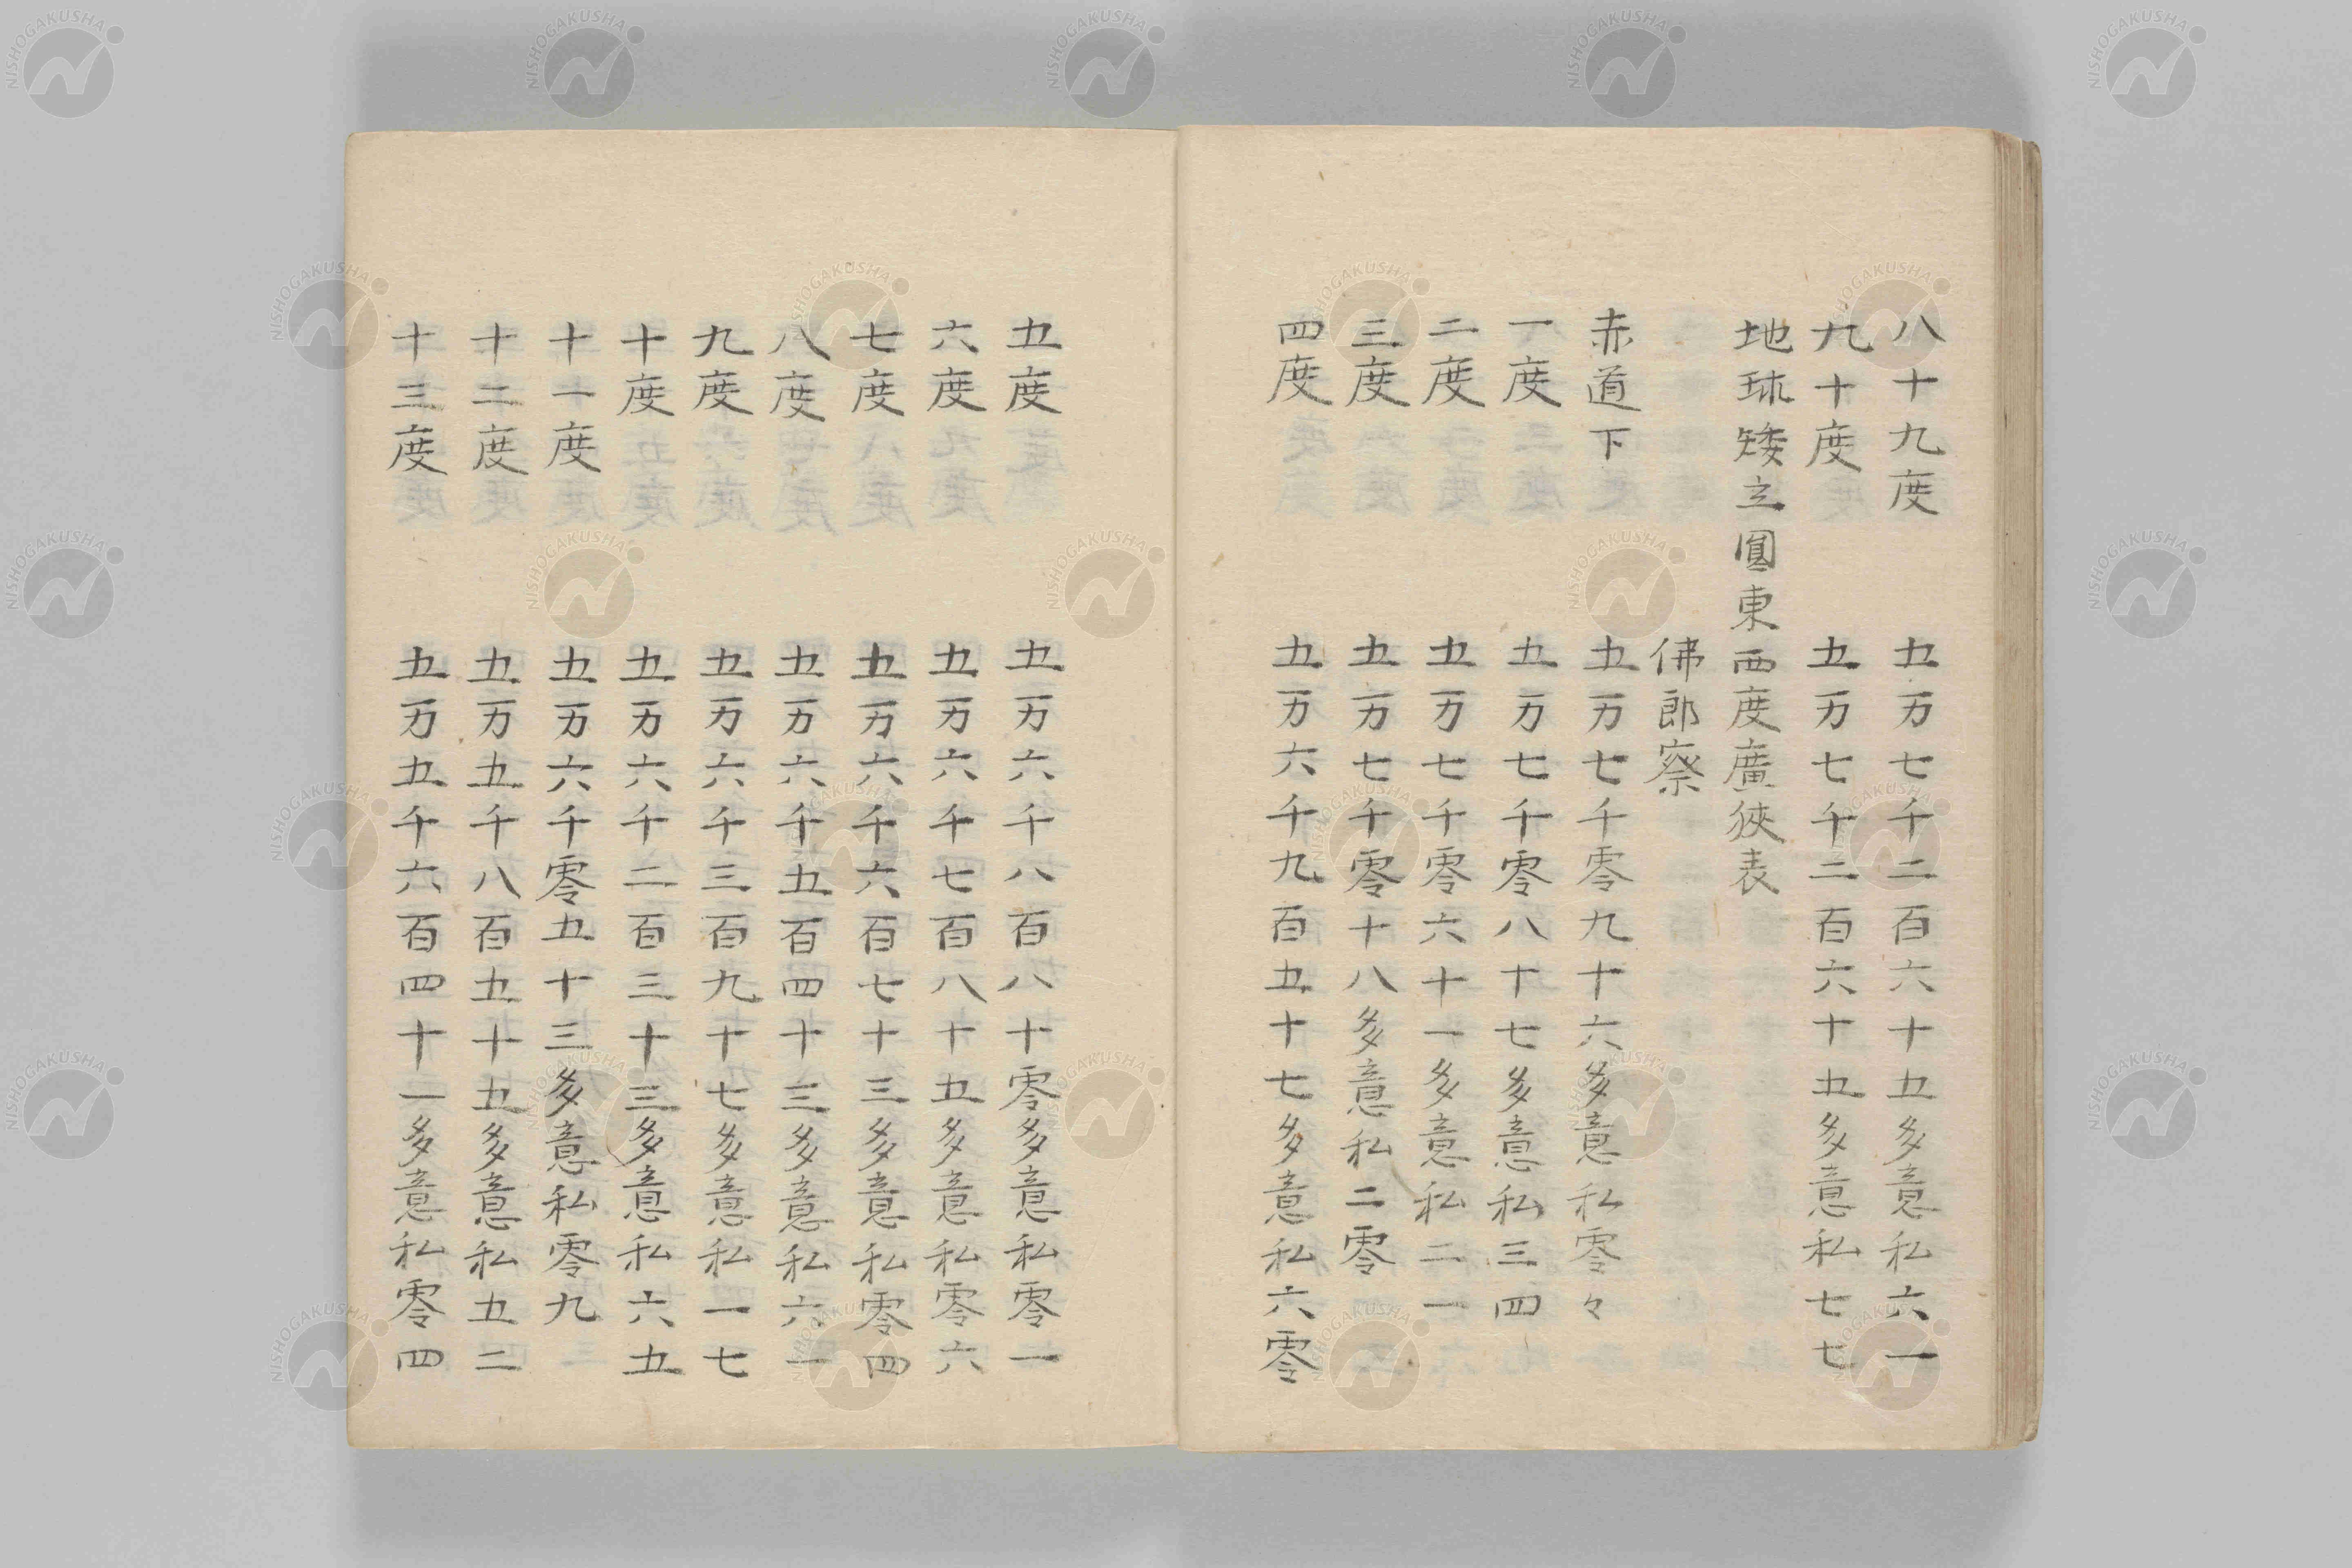 八十九度 五万七千二百六十五多意私六一
九十度 五万七千二百六十五多意私七七
地球矮立圓東西度廣狹表
佛郎察
赤道下 五万七千零九十六多意私零々
一度 五万七千零八十七多意私三四
二度 五万七千零六十一多意私二一
三度 五万七千零十八多意私二零
四度 五万六千九百五十七多意私六零
五度 五万六千八百八十零多意私零一
六度 五万六千七百八十五多意私零六
七度 五万六千六百七十三多意私零四
八度 五万六千五百四十三多意私六一
九度 五万六千三百九十七多意私一七
十度 五万六千二百三十三多意私六五
十一度 五万六千零五十三多意私零九
十二度 五万五千八百五十五多意私五二
十三度 五万五千六百四十一多意私零四
NISHOGAKUSHA